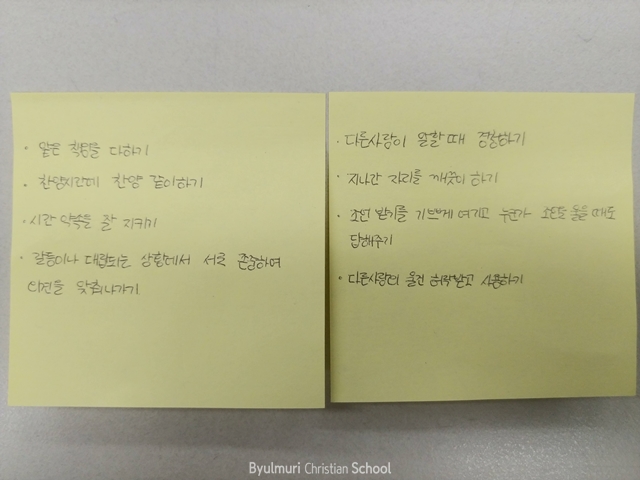 · 맡은 책임을 다하기
· 찬양시간에 찬양 같이하기
· 시간 약속을 잘 지키기
· 갈등이나 대립되는 상황에서 서로 존중하여
의견을 맞춰나가기
· 다른사람이 말할 때 경청하기
· 지나간 자리를 깨끗이 하기
· 조언 받기를 기쁘게 여기고 누군가 조언을 물을 때도
답해주기
· 다른사람의 물건 허락받고 사용하기
Byulmuri Christian School